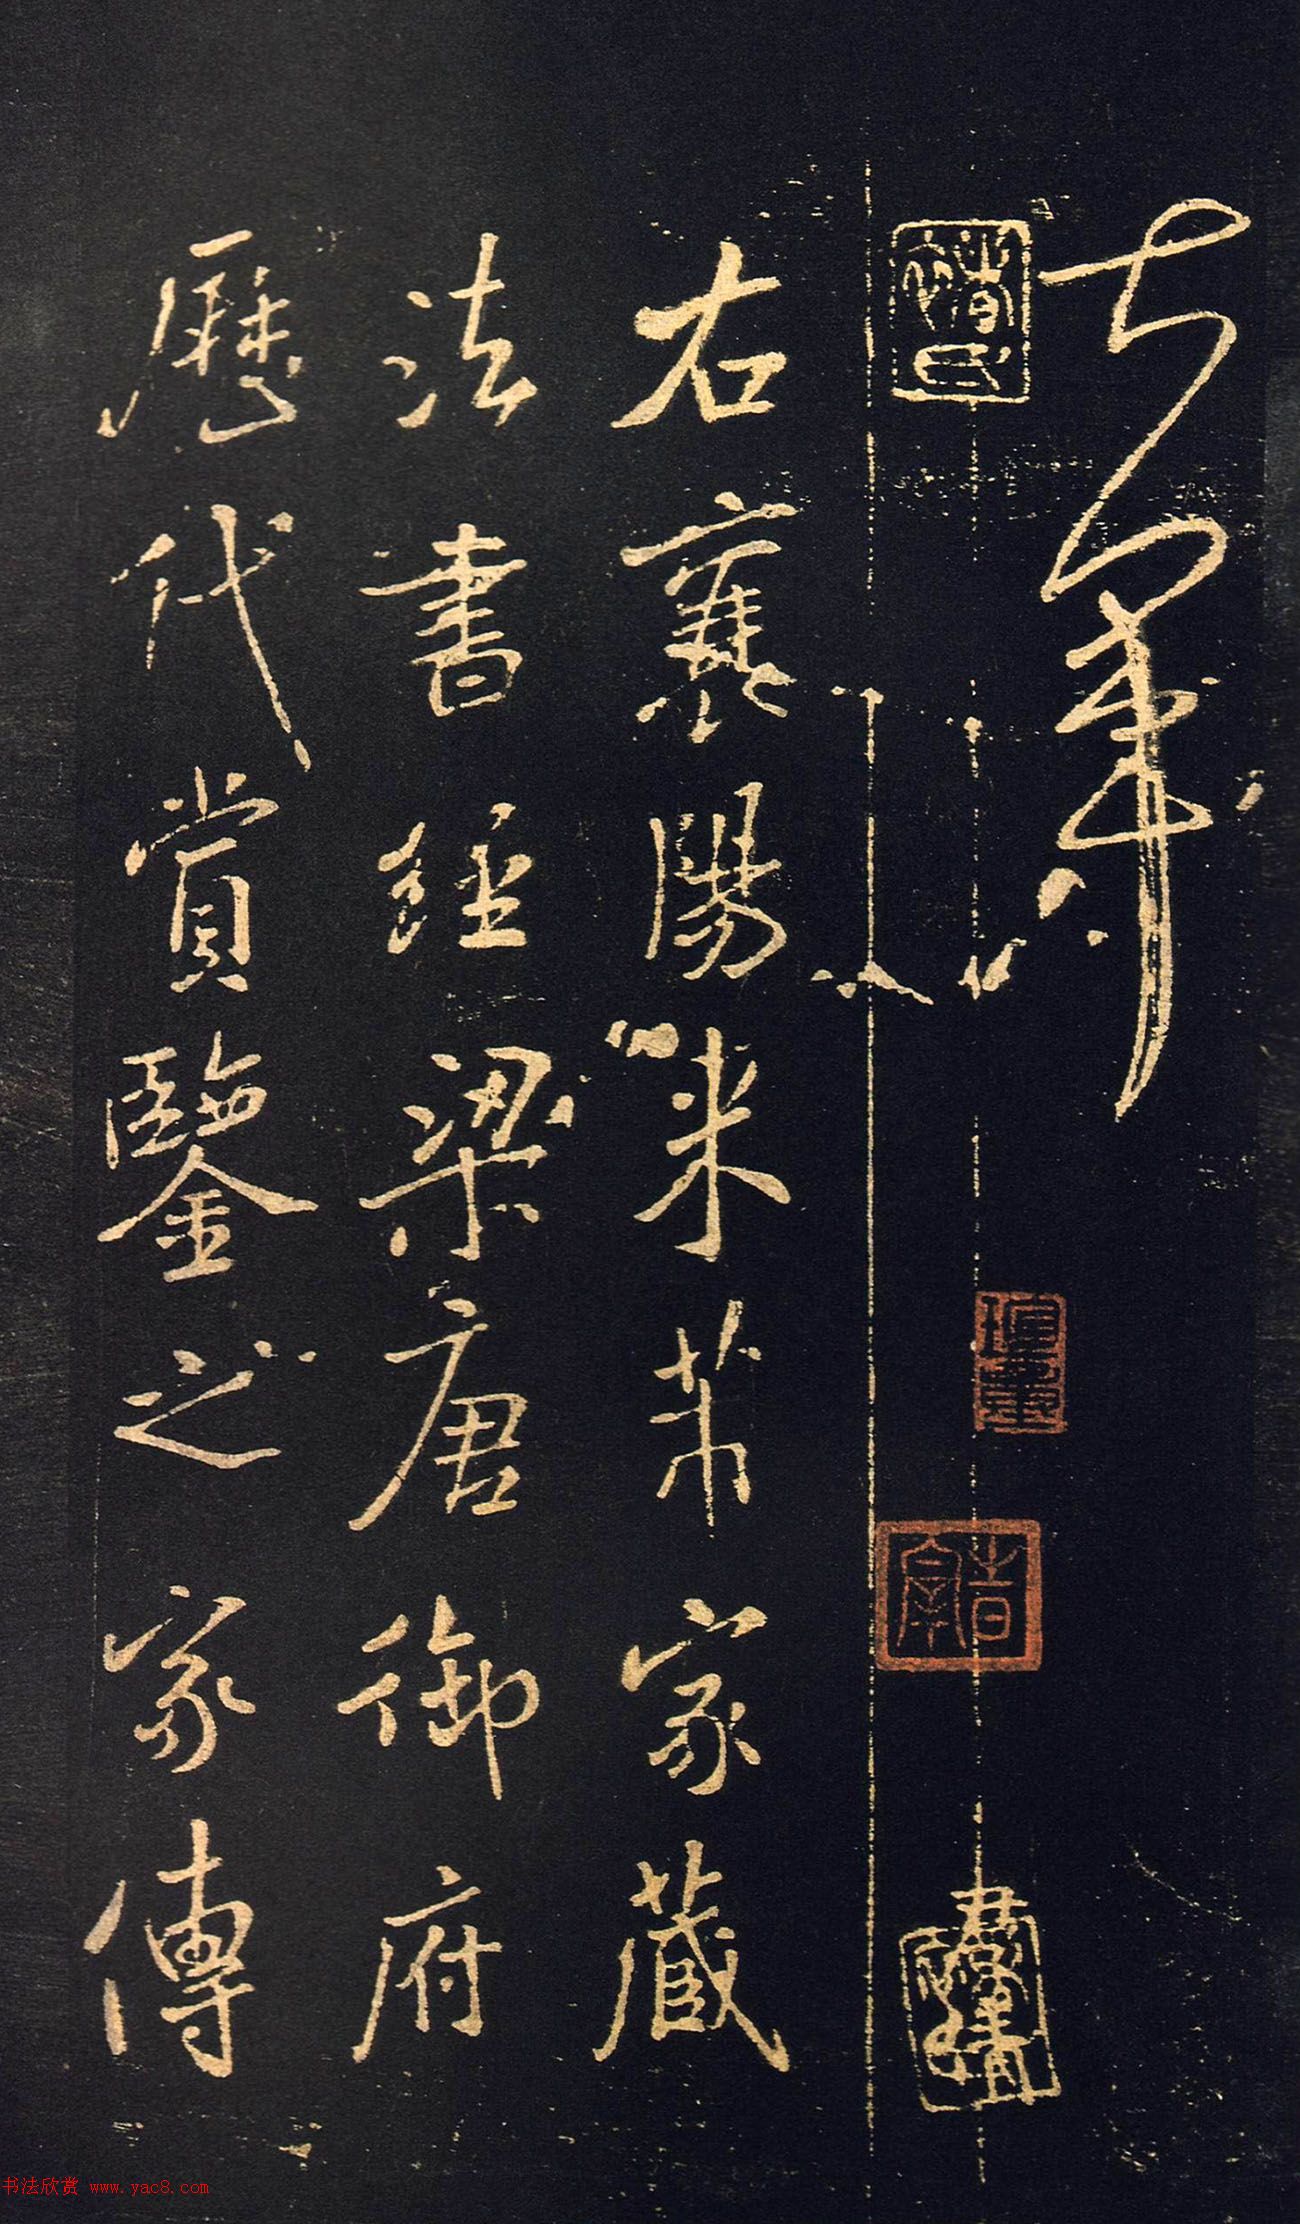 右軍
右襄陽米芾家藏
法書經梁唐御府
歷代賞鑒之家傳
书法欣赏 www.yac8.com